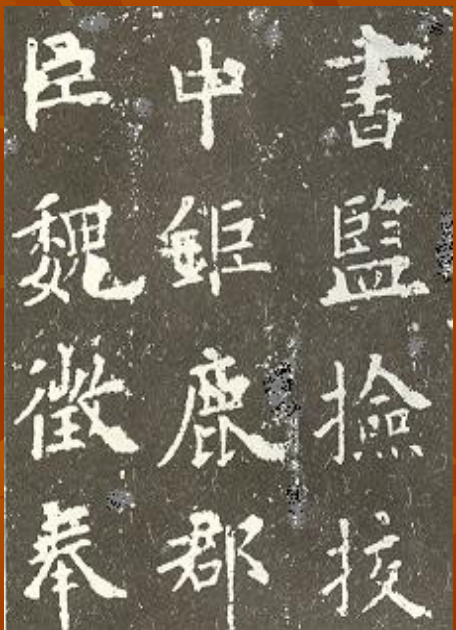 書監撿挍
中鉅鹿郡
臣魏徵奉